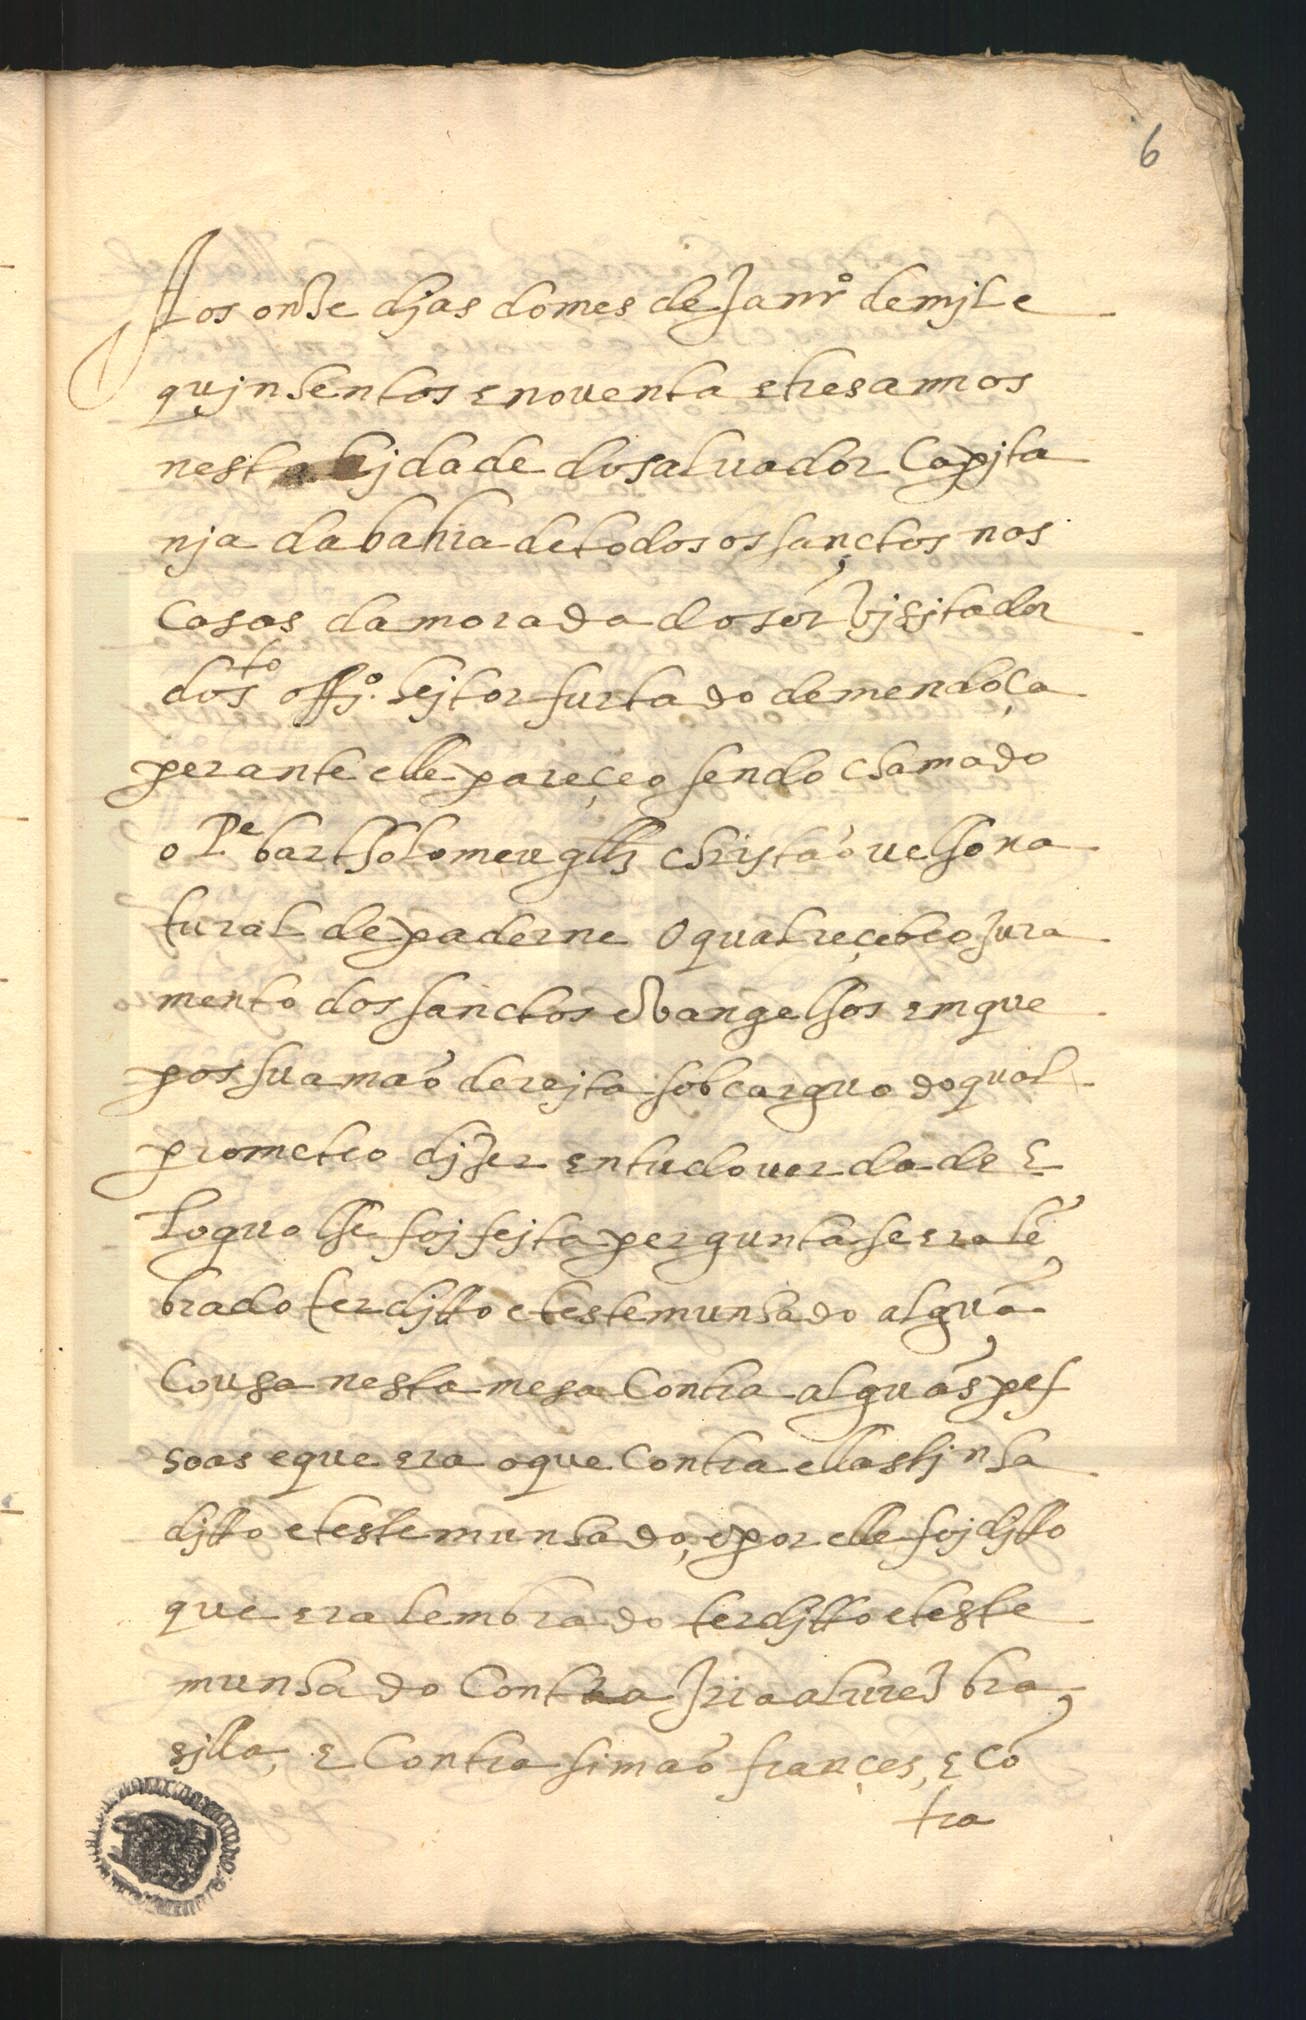 6
Aos onze djas do mes de Janrº de mjl e
qujnhentos e noventa e tres annos
nesta Cjdade do saluador Capjta
nja da bahia de todos os sanctos nas
Casas da morada do sõr Vjsitador
do sto offjº. heitor furtado de mendoça
perante elle pareçeo sendo chamado
o Pe bartholomeu glz christão velho na
tural de paderne O qual reçebeo Jura
mento dos sanctos Evangelhos em que
pos sua mão dereita sob carguo do qual
prometeo djzer em tudo verdade E
loguo lhe foj fejta pergunta se era lẽ
brado ter djtto e testemunhado alguã
Cousa nesta mesa Contra alguãs pes
soas e que era o que Contra ellas tjnha
djtto e testemunhado, e por elle foj djtto
que era lembrado ter djtto e teste
munhado Contra Jria aluez bra
sjlla, E Contra simão françes, E Cõ
tra